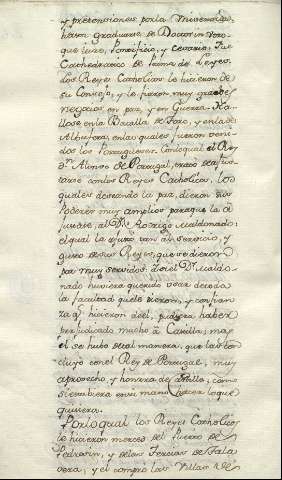 y pretensiones por la Universidad
hasta graduarse de Doctor in utro
que iure, Pontificio, y Cesareo, Fue
Cathedratico de Prima de Leyes.
Los Reyes Catholicos le hicieron de
su Consejo, y le fiaron muy grabes
negocios, en paz, y en Guerra. Ha
llose en la Batalla de Toro, y en la de
Albufera, en las quales fueron venci
dos los Portugueses. Con lo qual el Rey
Dn. Alonso de Portugal, trató de ajus
tarse con los Reyes Catholicos, los
quales deseando la paz, dieron sus
poderes muy amplios para que la a
justase, al Dr. Rodrigo Maldonado:
el qual la ajustó tan al servicio, y
gusto de sus Reyes, que se dieron
por muy servidos. Si el Dr. Maldo
nado huviera querido usar de toda
la facultad que le dieron, y confian
za q. hicieron del, pudiera haber
perjudicado mucho a Castilla; mas
el se hubo de tal manera, que lo con
cluyó con el Rey de Portugal, muy
a provecho, y honara de Castilla, como
si estubiera en su mano hacer lo que
quisiera.
Por lo qual los Reyes Catholicos
le hicieron merced del fuerte de
Pedraza, y de las Tercias de Tala
vera, y el compró las Villas de